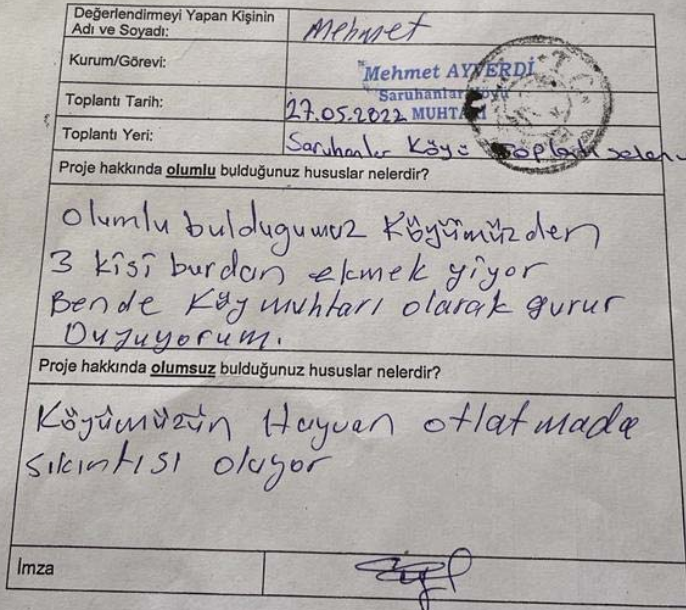 Değerlendirmeyi Yapan Kişinin
Adı ve Soyadı:
Mehmet
Kurum/Görevi:
Mehmet AYVERDİ
Saruhanlar Köyü
MUHTARI
Toplantı Tarih:
27.05.2022
Toplantı Yeri:
Saruhanlar Köyü
Proje hakkında olumlu bulduğunuz hususlar nelerdir?
olumlu buldugumuz Köyümüzden
3 kişi burdan ekmek yiyor
Bende Köy muhtarı olarak gurur
Duyuyorum.
Proje hakkında olumsuz bulduğunuz hususlar nelerdir?
Köyümüzün Hayvan otlatmada
sıkıntısı oluyor
İmza